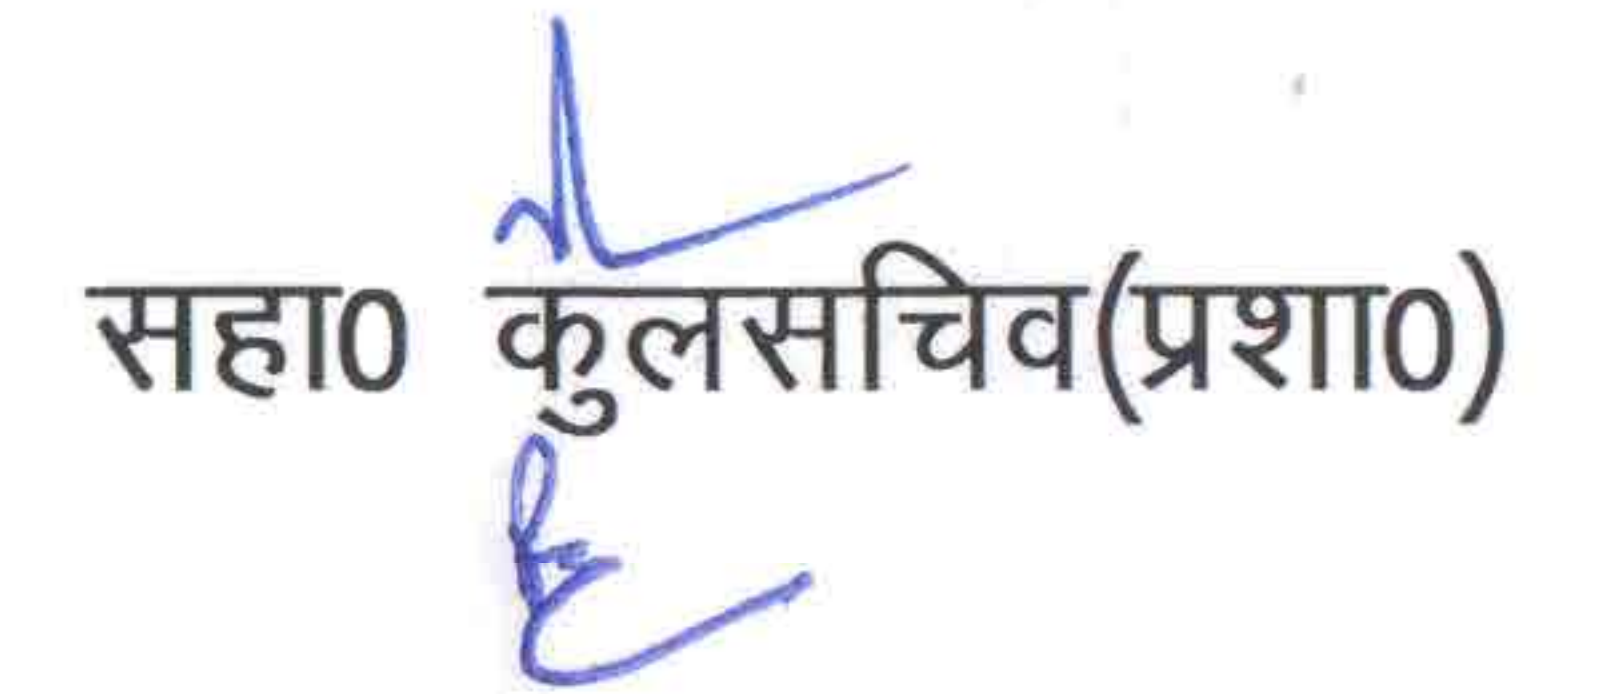 सहा0 कुलसचिव(प्रशा0)